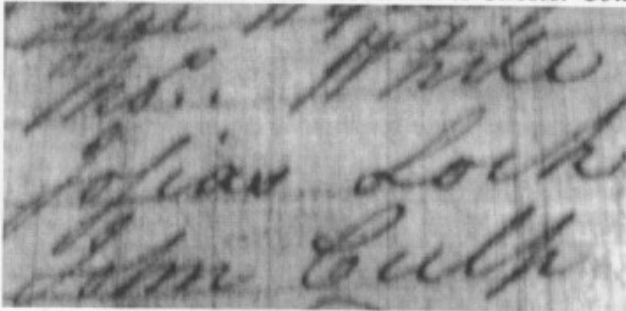 Thos. White
Josias Lock
John Culp